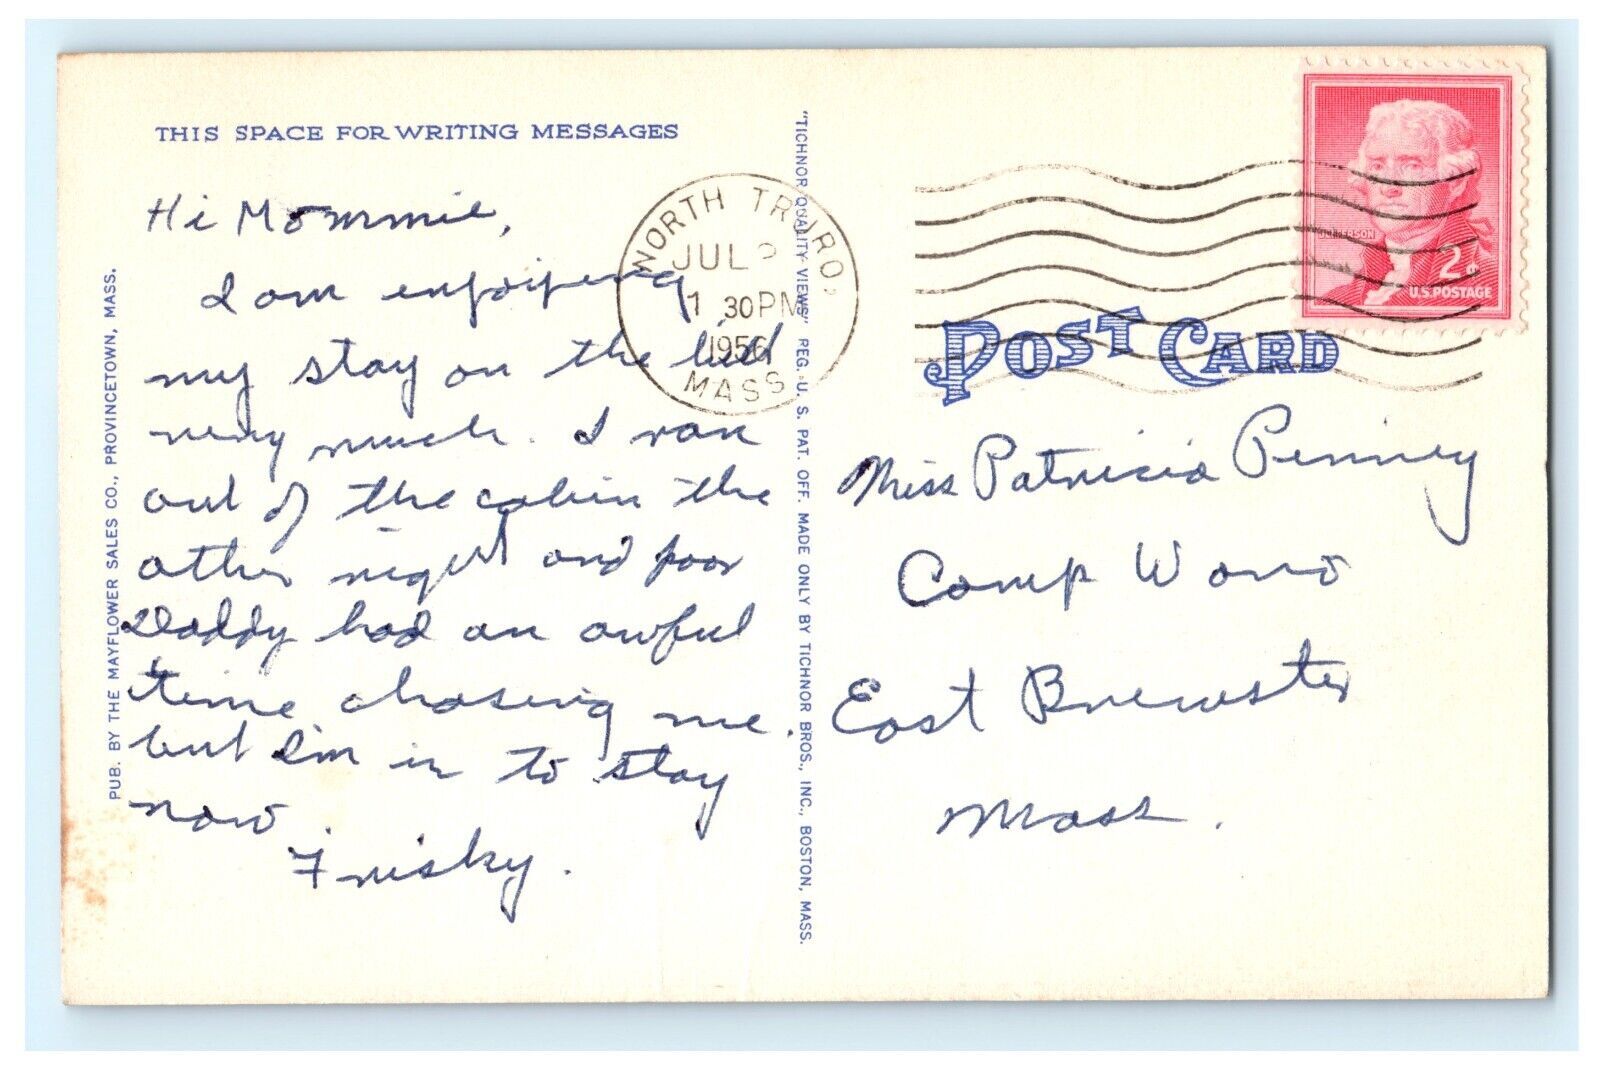 THIS SPACE FOR WRITING MESSAGES
Hi Mommie,
I am enjoying
my stay on the
very much. I ran
out of the cabin the
other night and poor
Daddy had an awful
time chasing me.
but I'm in to stay
now
Frisky.
PUB. BY THE MAYFLOWER SALES CO., PROVINCETOWN, MASS.
"TICHNOR QUALITY VIEWS" REG. U. S. PAT. OFF. MADE ONLY BY TICHNOR BROS., INC., BOSTON, MASS.
NORTH TRURO,
JUL
1 30 PM
1956
MASS
JEFFERSON
2¢
U.S. POSTAGE
POST CARD
Miss Patricia Pinney
Camp Wono
East Brewster
Mass.